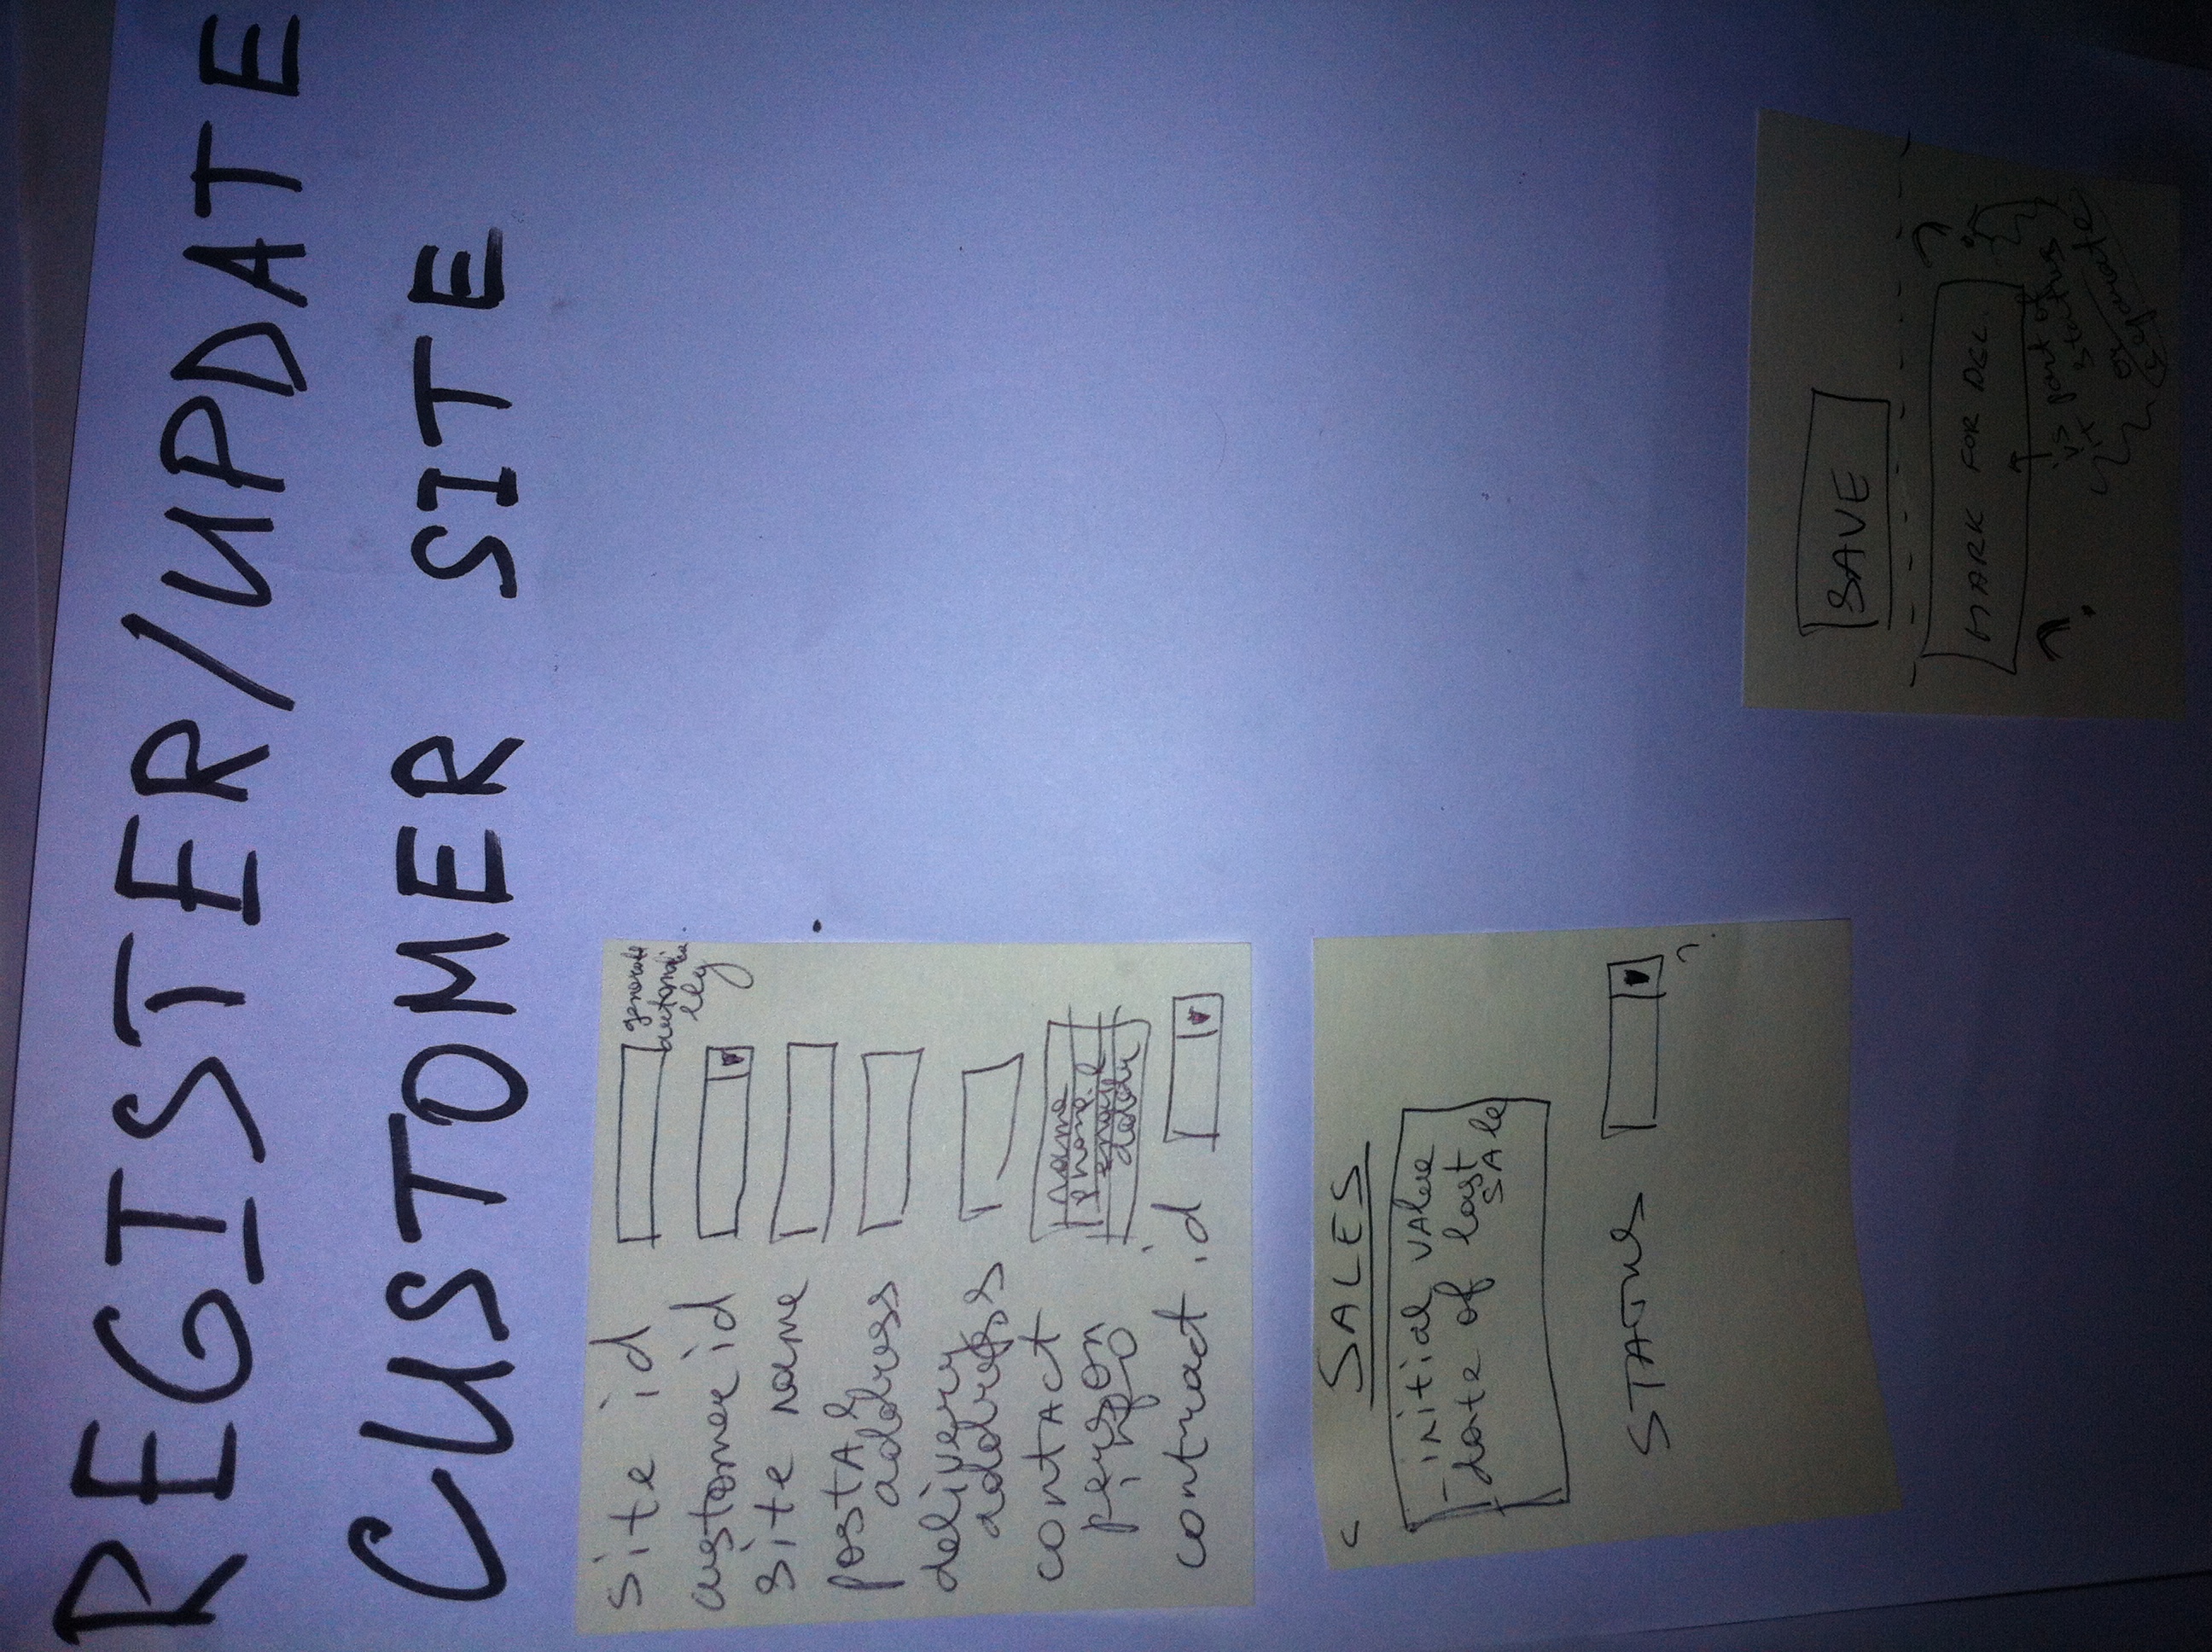 REGISTER/UPDATE
CUSTOMER SITE
site id
generate
automatica
lly
customer id
site name
postAl
address
delivery
address
contAct
person
info
name
phone
email
addr
contract id
SALES
- initial vAlue
date of last
SAle
STATUS
?
SAVE
?
MARK FOR DEL.
?
is part of
it status
or
separate